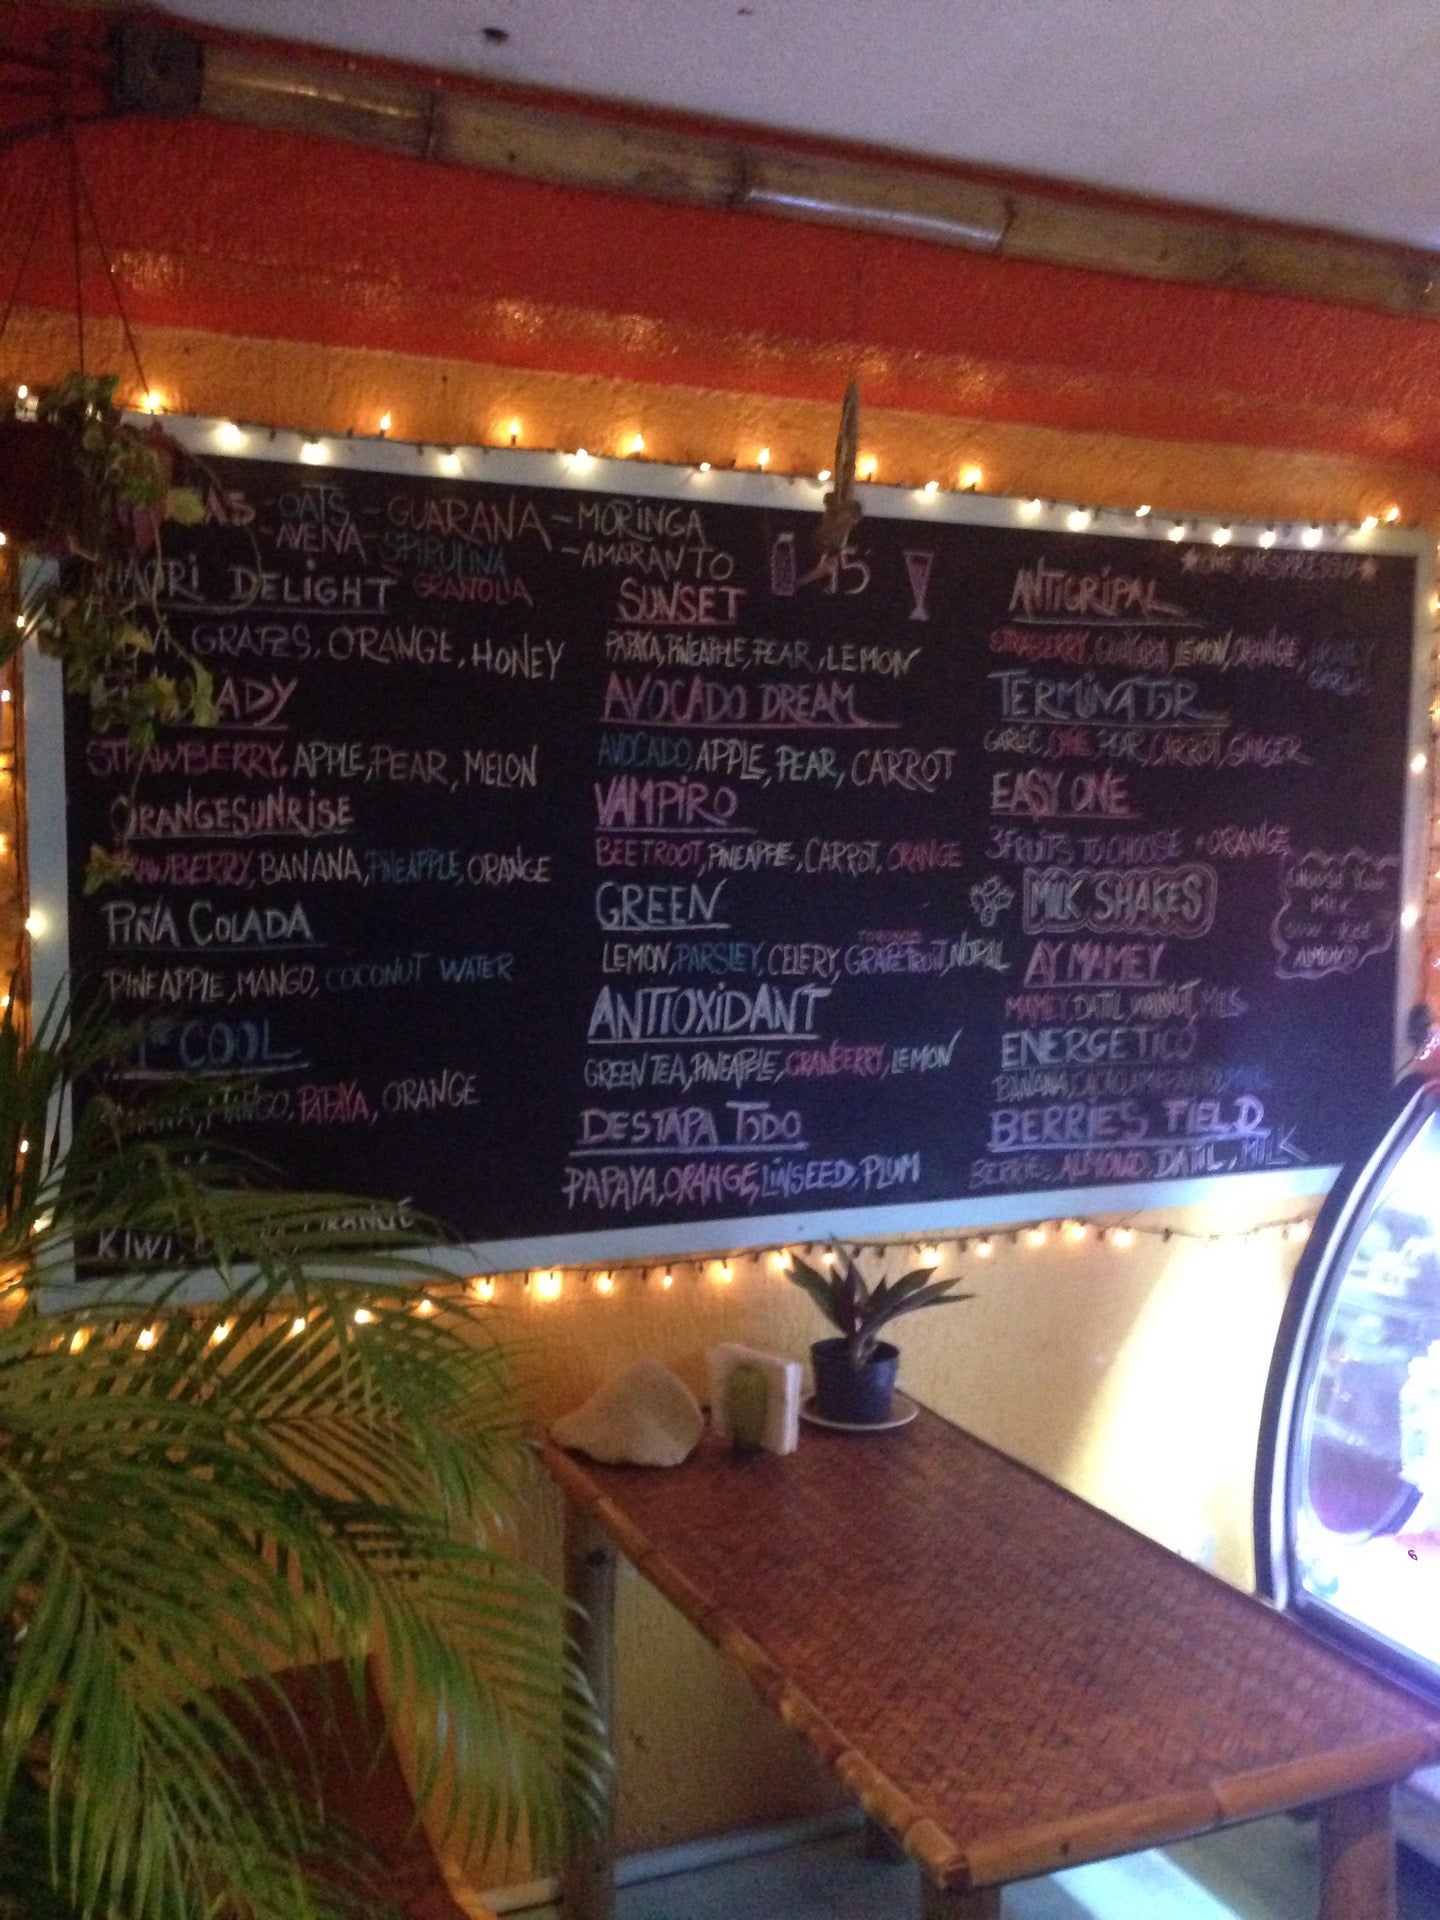 - OATS - GUARANA - MORINGA
- AVENA - SPIRULINA - AMARANTO
GRANOLA
DELIGHT
GRAPES, ORANGE, HONEY
LADY
STRAWBERRY, APPLE, PEAR, MELON
ORANGE SUNRISE
STRAWBERRY, BANANA, PINEAPPLE, ORANGE
PIÑA COLADA
PINEAPPLE, MANGO, COCONUT WATER
COOL
MANGO, PAPAYA, ORANGE
KIWI, ORANGE
45
SUNSET
PAPAYA, PINEAPPLE, PEAR, LEMON
AVOCADO DREAM
AVOCADO, APPLE, PEAR, CARROT
VAMPIRO
BEETROOT, PINEAPPLE, CARROT, ORANGE
GREEN
LEMON, PARSLEY, CELERY, GRAPEFRUIT, NOPAL
ANTIOXIDANT
GREEN TEA, PINEAPPLE, CRANBERRY, LEMON
DESTAPA TODO
PAPAYA, ORANGE, LINSEED, PLUM
ANTIGRIPAL
LEMON, ORANGE,
TERMINATOR
GARLIC, PEAR, CARROT, GINGER
EASY ONE
3 FRUITS TO CHOOSE + ORANGE
MILK SHAKES
CHOOSE YOUR
MILK
ALMOND
AY MAMEY
MAMEY, DATIL, WALNUT, MILK
ENERGETICO
BANANA, CACAO,
BERRIES FIELD
BERRIE, ALMOND, DATIL, MILK